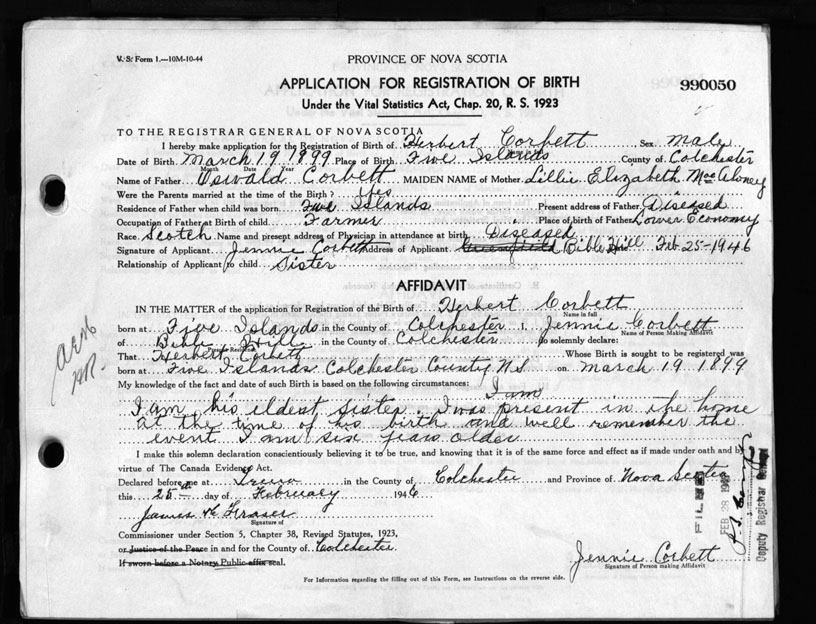 V. S. Form 1.—10M-10-44
PROVINCE OF NOVA SCOTIA
APPLICATION FOR REGISTRATION OF BIRTH
990050
Under the Vital Statistics Act, Chap. 20, R. S. 1923
TO THE REGISTRAR GENERAL OF NOVA SCOTIA
I hereby make application for the Registration of Birth of Herbert Corbett Sex Male
Name in full
Date of Birth March 19 1899 Place of Birth Five Islands County of Colchester
Month Date Year
Name of Father Oswald Corbett MAIDEN NAME of Mother Lillie Elizabeth MacAloney
Were the Parents married at time of the Birth? Yes
Residence of Father when child was born Five Islands Present address of Father Diseased
Occupation of Father at Birth of child Farmer Place of birth of Father Lower Economy
Race Scotch Name and present address of Physician in attendance at birth Diseased
Signature of Applicant Jennie Corbett Address of Applicant Bible Hill Date Feb 25-1946
Relationship of Applicant to child Sister
AFFIDAVIT
IN THE MATTER of the application for Registration of the Birth of Herbert Corbett
Name in full
born at Five Islands in the County of Colchester I, Jennie Corbett
Name of Person Making Affidavit
of Bible Hill in the County of Colchester do solemnly declare:
That Herbert Corbett Whose Birth is sought to be registered was
born at Five Islands Colchester County N S on March 19 1899
My knowledge of the fact and date of such Birth is based on the following circumstances: I am
I am his eldest sister. I was present in the home
at the time of his birth and well remember the
event I am six years older
I make this solemn declaration conscientiously believing it to be true, and knowing that it is of the same force and effect as if made under oath and by
virtue of The Canada Evidence Act.
Declared before me at Truro in the County of Colchester and Province of Nova Scotia
this 25th day of February 1946
James Fraser
Signature of
Commissioner under Section 5, Chapter 38, Revised Statutes, 1923,
or Justice of the Peace in and for the County of Colchester
If sworn before a Notary Public affix seal.
Jennie Corbett
Signature of Person making Affidavit
For Information regarding the filling out of this Form, see Instructions on the reverse side.
FILED
FEB 28 1946
Deputy Registrar